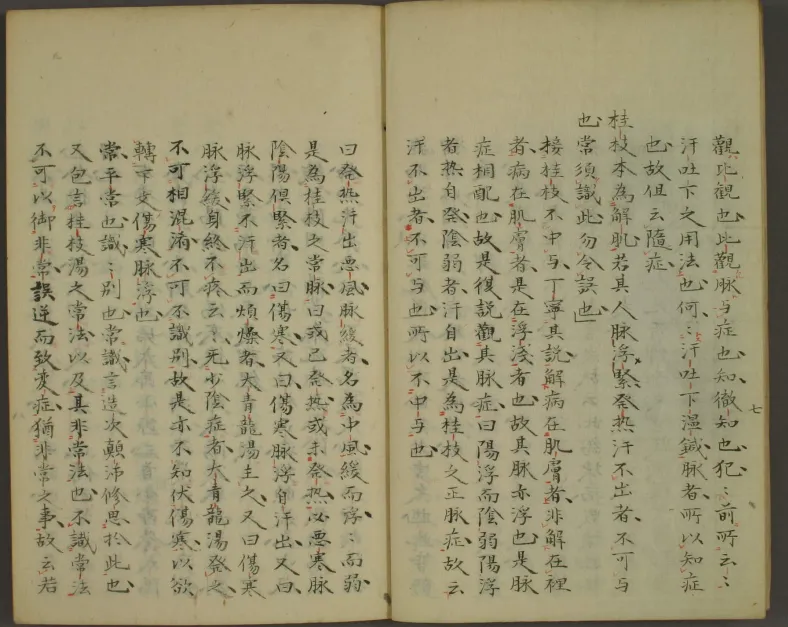 觀比觀也比觀脉与症也知徹知也犯〻前所云〻
汗吐下之用法也何〻汗吐下温鍼脉者所以知症
也故但云隨症
桂枝本為解肌若其人脉浮緊發熱汗不出者不可与
也常須識此勿令誤也
接桂枝不中与丁寧其説解病在肌膚者非解在裡
者病在肌膚者是在浮淺者也故其脉亦浮也是脉
症相配也故是復説觀其脉症曰陽浮而陰弱陽浮
者热自発陰弱者汗自出是為桂枝之正脉症故云
汗不出者不可与也所以不中与也
七
曰発热汗出悪風脉緩者名為中風緩而浮〻而弱
是為桂枝之常脉曰或已発热或未発热必悪寒脉
陰陽倶緊者名曰傷寒又曰傷寒脉浮自汗出又曰
脉浮緊不汗出而煩燥者大青龍湯主之又曰傷寒
脉浮緩身終不疼云〻无少陰症者大青龍湯発之
不可相混淆不可不識別故是亦不知伏傷寒以欲
轉下文傷寒脉浮也
常平常也識〻別也常識言造次顛沛修思於此也
又包言桂枝湯之常法以及其非常法也不識常法
不可以御非常誤逆而致変症猶非常之事故云若